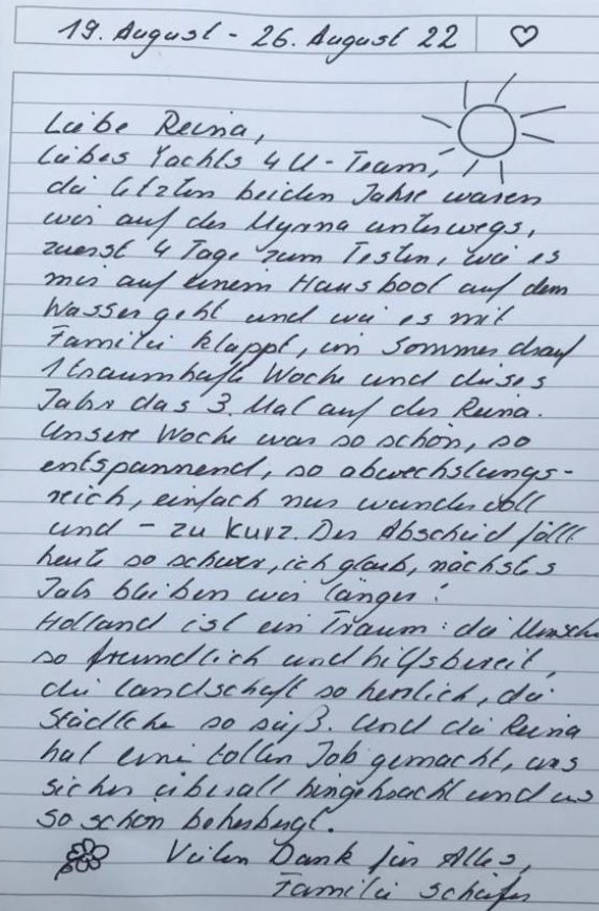 19. August - 26. August 22
Liebe Reina,
liebes Yachts 4 U-Team,
die letzten beiden Jahre waren
wir auf der Mynna unterwegs,
zuerst 4 Tage zum Testen, wie es
mir auf einem Hausboot auf dem
Wasser geht und wie es mit
Familie klappt, im Sommer drauf
1 traumhafte Woche und dieses
Jahr das 3. Mal auf der Reina.
Unsere Woche war so schön, so
entspannend, so abwechslungs-
reich, einfach nur wundervoll
und - zu kurz. Der Abschied fällt
heute so schwer, ich glaub, nächstes
Jahr bleiben wir länger!
Holland ist ein Traum: die Mensch
so freundlich und hilfsbereit,
die Landschaft so herrlich, die
Städtche so süß. Und die Reina
hat eine tollen Job gemacht, uns
sicher überall hingebracht und uns
so schön beherbergt.
Vielen Dank für Alles,
Familie Schäfer